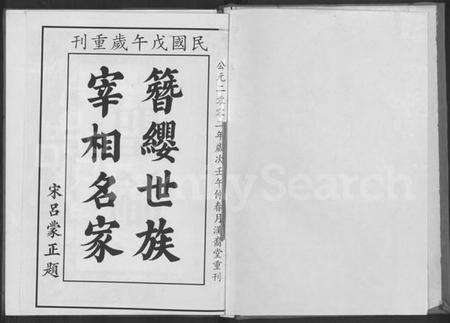 民國戊午歲重刊
公元二零零二年歲次壬午仲春月滿裔堂重刊
簪纓世族
宰相名家
宋呂蒙正題
FamilySearch